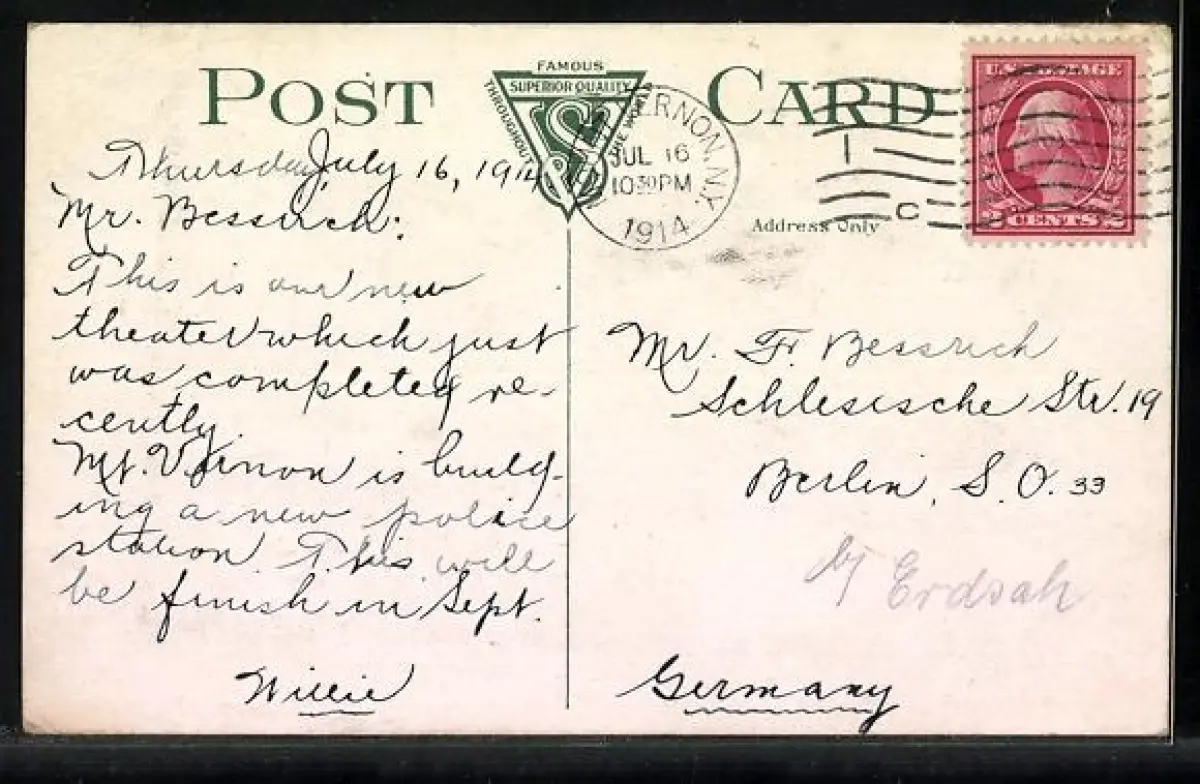 POST CARD
FAMOUS
SUPERIOR QUALITY
THROUGHOUT
THE WORLD
VERNON, N.Y.
JUL 16
10 30 PM
1914
C
U.S. POSTAGE
2 CENTS 2
Address Only
Thursday July 16, 1914
Mr. Bessrich:
This is our new
theater which just
was completed re-
cently.
Mt. Vernon is build-
ing a new police
station. This will
be finish in Sept.
Willie
Mr. Fr. Bessrich
Schlesische Str. 19
Berlin, S. O. 33
Germany